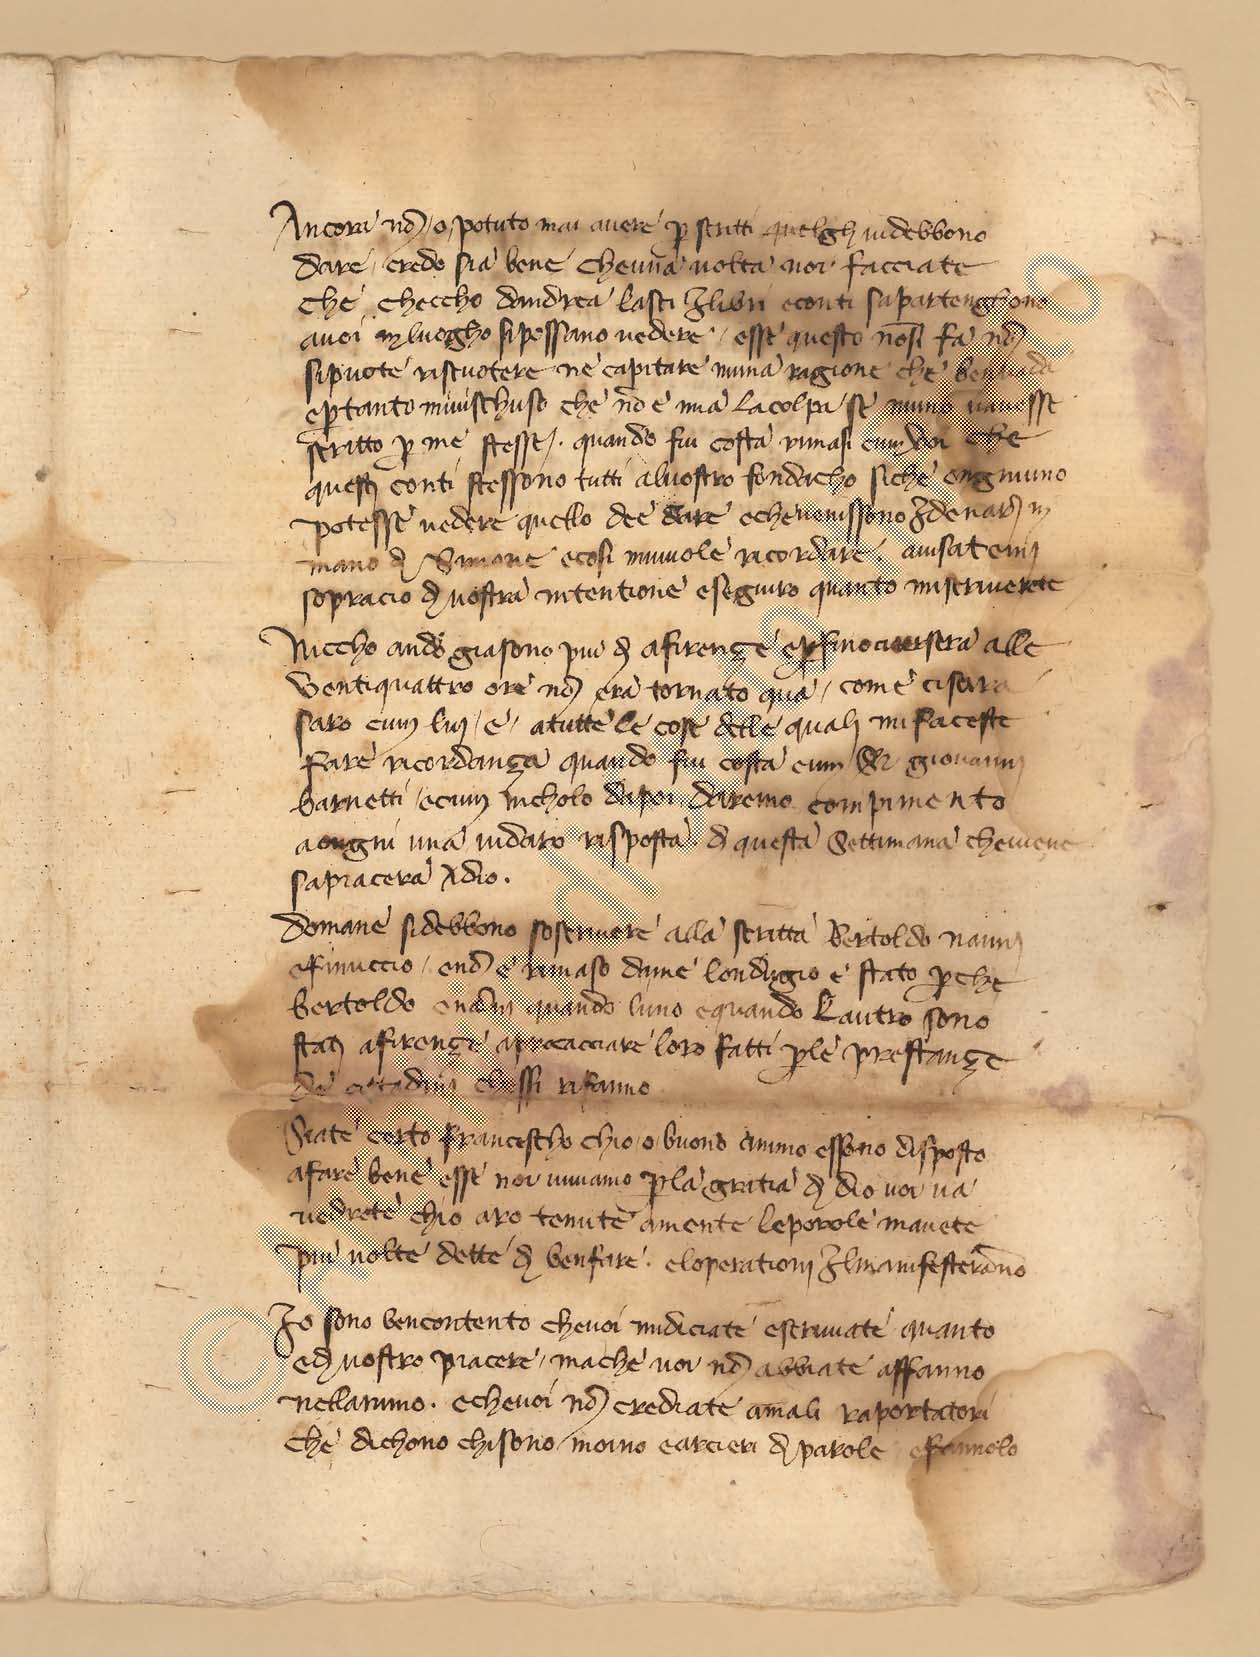 Ancora nō / o / potuto mai avere p scritti quelgli vi debbono
dare / credo sia bene che una volta noi facciate
che checcho dandrea lasci I libri e conti sapartenghono
avoi in luogho sipossano vedere / esse questo nōsi fa nō
sipuote riscuotere ne capitare niuna ragione che
e ptanto mivischuso che nō e mia la colpa se
scritto p me stessi. quando fu costa rimasi cum voi che
questi conti stessono tutti alvostro fondacho siche ongniuno
potesse vedere quello dee dare eche venissono I denari in
mano di Simone ecosi mivuole ricordare. avisatemi
sopracio di vostra intentione eseguiro quanto miscriverete
Niccho ando giasono piu di afirençe epfino
Ventiquattro ore nō era tornato qua / come cisara
saro cum lui / e / atutte le cose delle quali mi faceste
fare ricordança quando fu costa cum Sr giovanni
barnetti / ecum nicholo dapoi daremo compimento
a ongni una vidaro risposta di questa Settimana cheviene
sapiacera Adio.
domane sidebbono soscrivere alla scritta Bertoldo nanni
efinuccio / enō e rimaso dame londugio e stato pche
bertoldo enanni quando luno equando Lautro sono
stati afirençe aprocacciare loro fatti ple prestançe
de cittadini chessi rifanno
Siate certo francescho chio / o / buono animo essono disposto
afare bene esse noi viviamo pla gratia di dio voi va
vedrete chio aro tenute amente leparole mavete
piu volte dette di benfare. eloperationi Ilmanifesteranno
Io sono bencontento chevoi midiciate escrivate quanto
edi vostro piacere / mache voi nō abbiate affanno
nellanimo. echevoi nō crediate amali raportatori
che dichono chisono / moino earcieri di parole efannolo